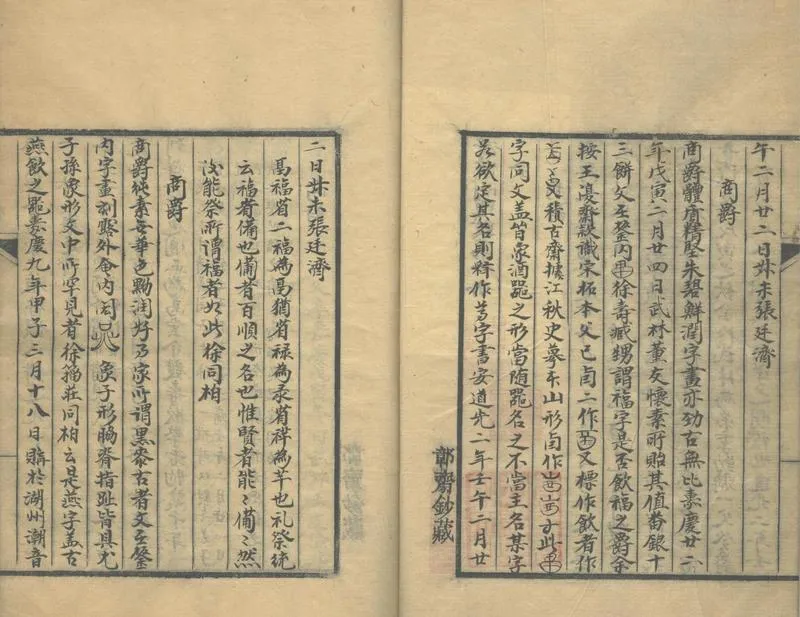 午二月廿二日叔未張廷濟
商爵
商爵體質精堅朱碧鮮潤字畫亦勁古無比嘉慶廿二
年戊寅二月廿四日武林董友懷素所貽其值番銀十
三餅文在鋬内徐壽臧甥謂福字是否飲福之爵余
按王復齋款識宋拓本父己卣二作又標作飲者作
見積古齋據江秋史摹本山形卣作此
字同文蓋皆象酒器之形當隨器名之不當主名某字
若欲定其名則釋作字書安道光二年壬午二月廿
鄣齋鈔藏
二日叔未張廷濟
畐福省二福為畐猶省祿為彔省祥為羊也礼祭統
云福者備也備者百順之名也惟賢者能〻備〻然
後能祭所謂福者如此徐同柏
商爵
商爵純素無華色黝潤好乃家所謂黑漆古者文在鋬
内字畫刻露外侖内閎象子形腸脊指趾皆具尤
子孫象形文中所罕見者徐籀莊同柏云是燕字蓋古
燕飲之器嘉慶九年甲子三月十八日購於湖州潮音